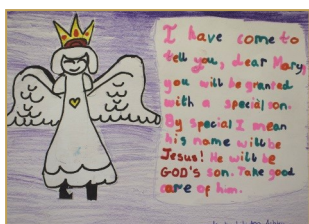 I have come to
tell you, dear Mary,
you will be granted
with a special son.
By special I mean
his name will be
Jesus! He will be
GOD's son. Take good
care of him.